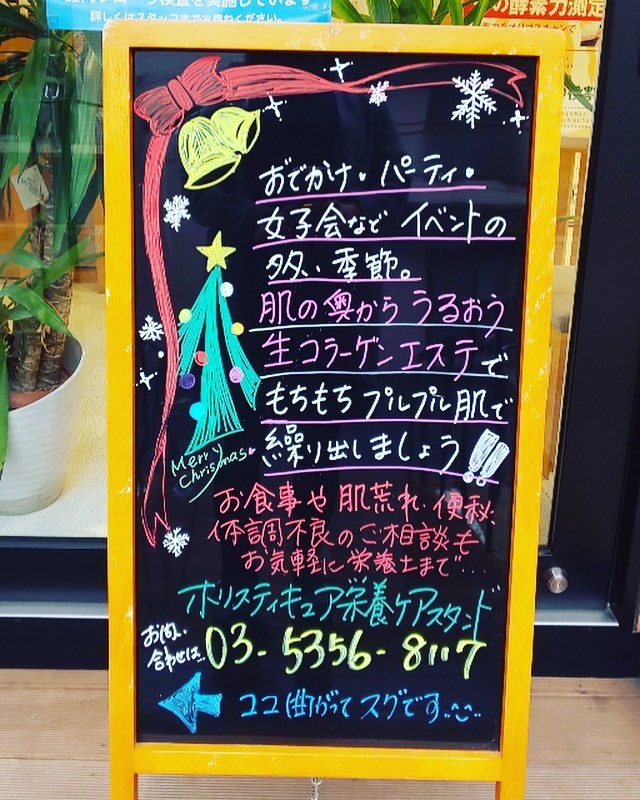 詳しくはスタッフまでお尋ねください。
の酵素力測定
おでかけ・パーティ・
女子会など イベントの
多い季節。
肌の奥から うるおう
生コラーゲンエステで
もちもち プルプル肌で
繰り出しましょう!!
Merry
Christmas
お食事や肌荒れ・便秘、
体調不良のご相談も
お気軽に栄養士まで…
ホリスティキュア栄養ケアスタンド
お問い
合わせは… 03-5356-8117
ココ曲がってスグです…